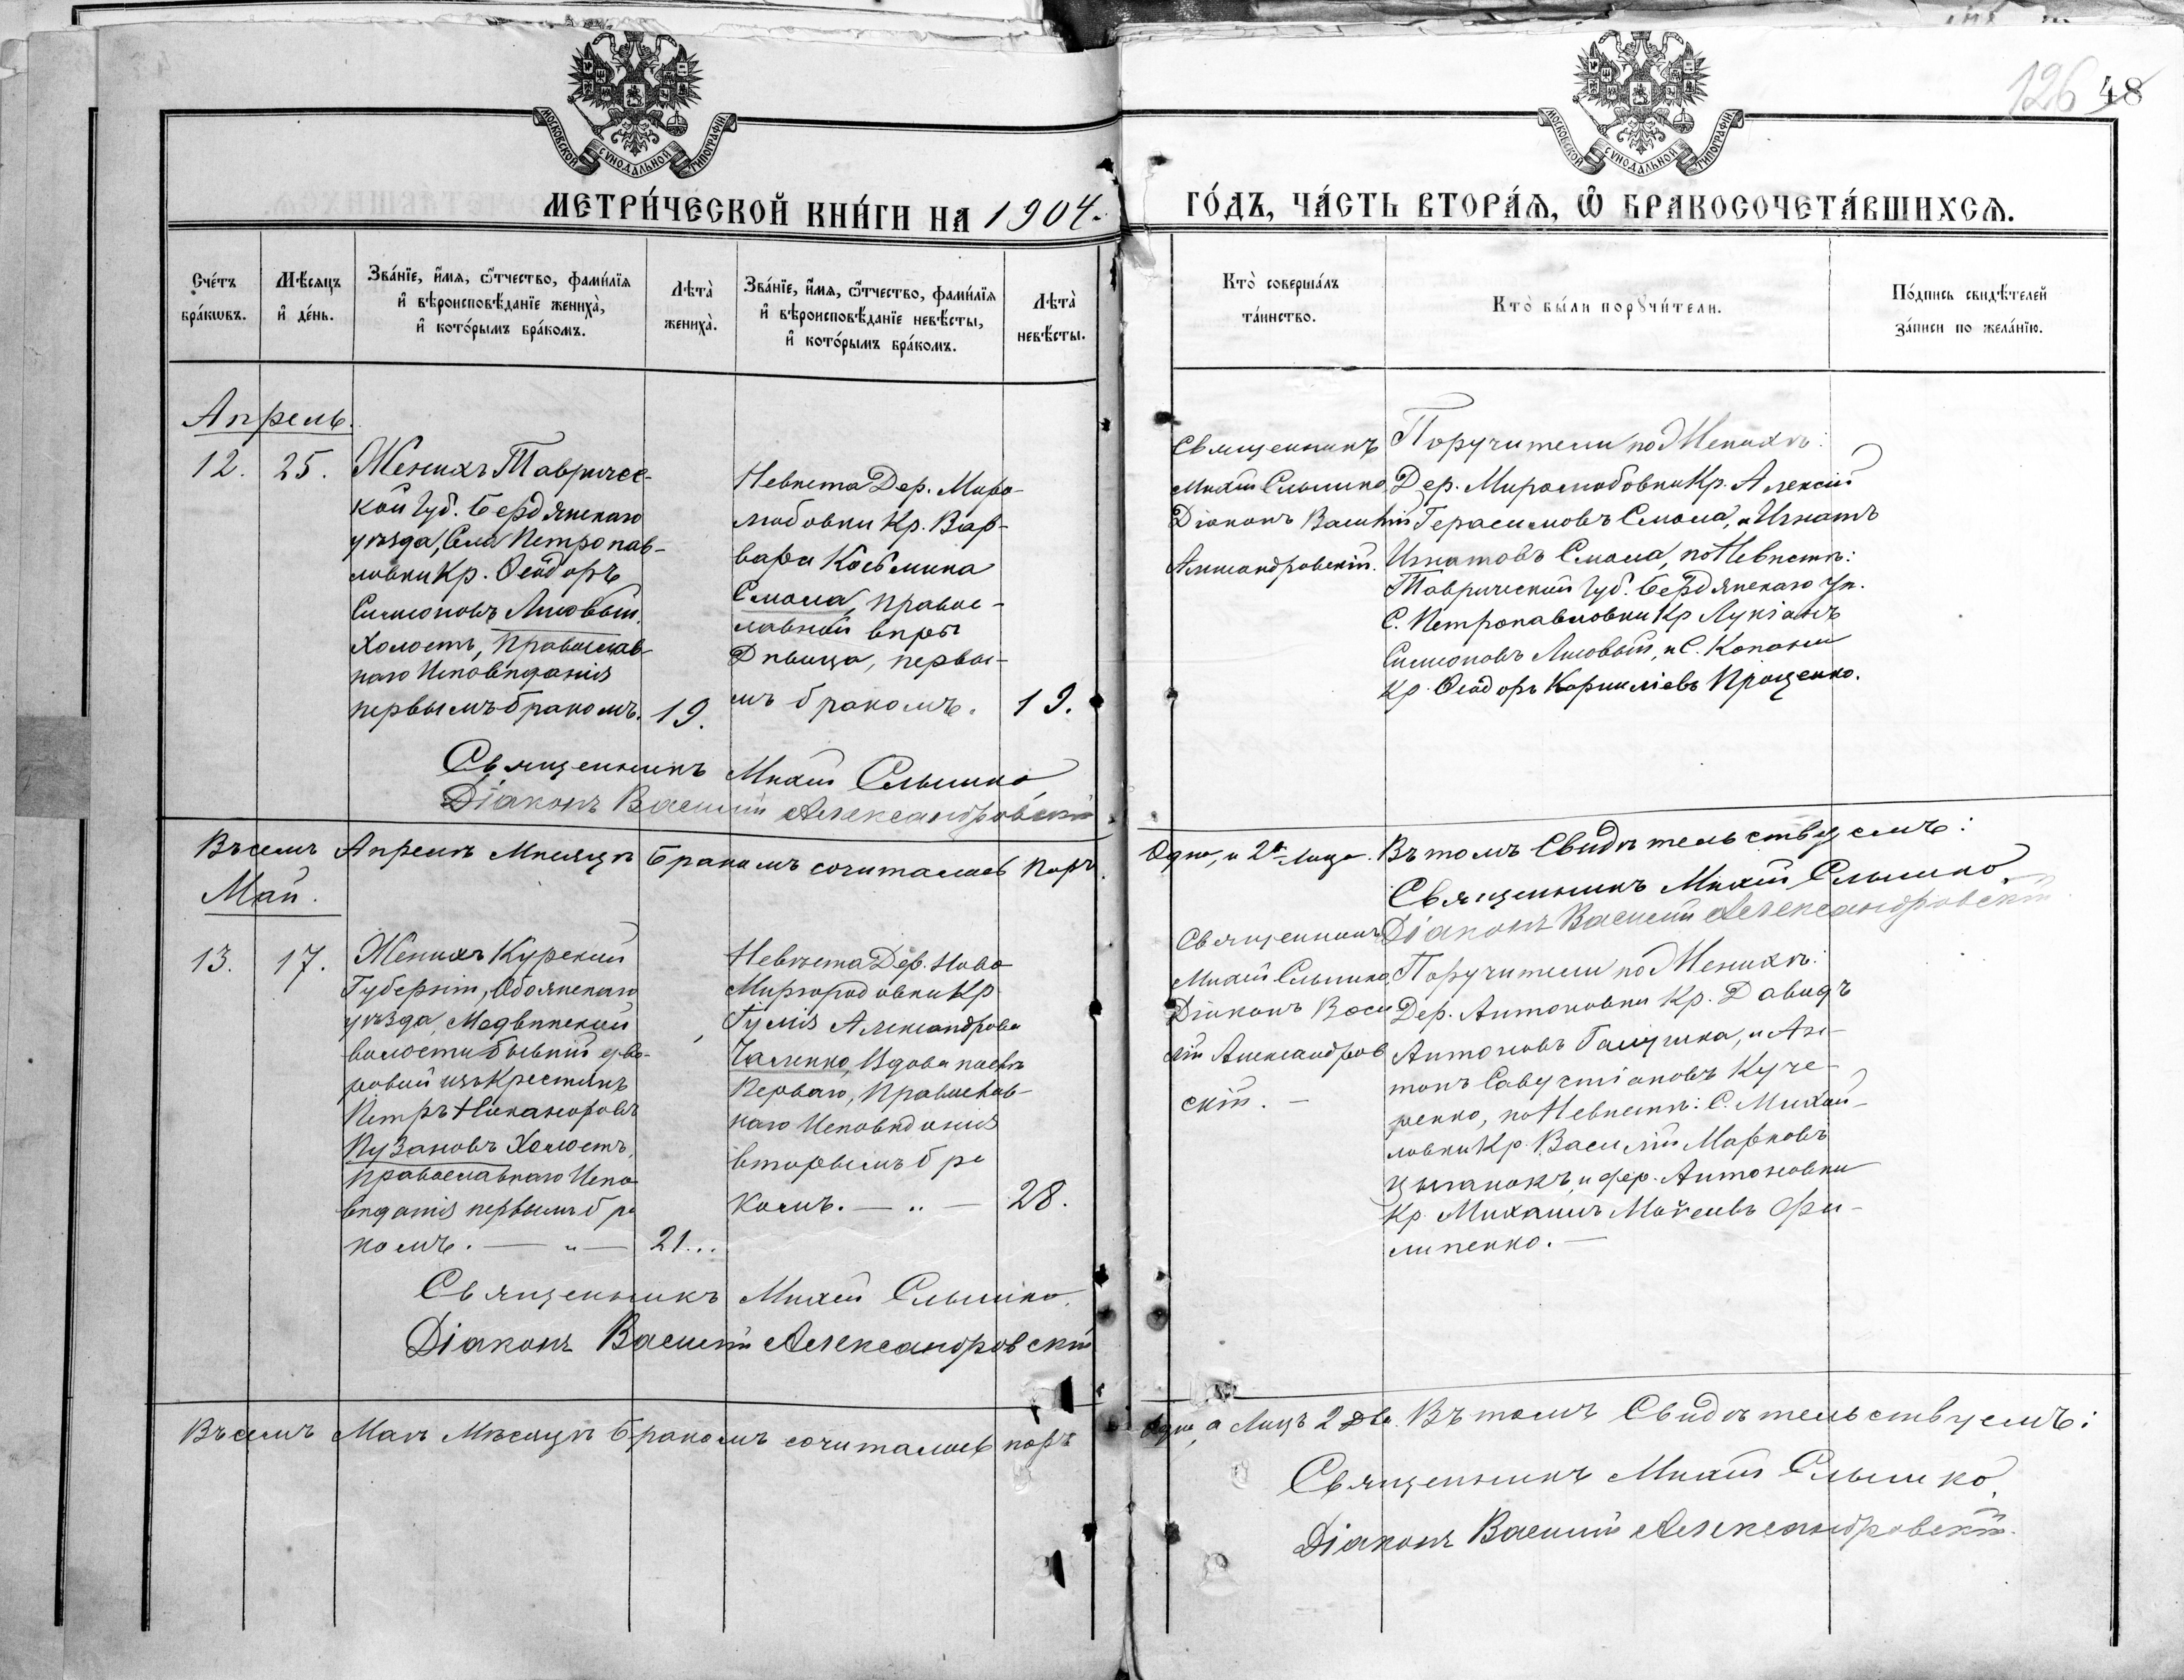 126 48
МОСКОВСКОЙ СѴНОДАЛЬНОЙ ТИПОГРАФІИ
МОСКОВСКОЙ СѴНОДАЛЬНОЙ ТИПОГРАФІИ
МЕТРИ́ЧЕСКОЙ КНИ́ГИ НА 1904.
ГО́ДЪ, ЧА́СТЬ ВТОРА́Ѧ, Ѡ҆ БРАКОСОЧЕТА́ВШИХСѦ.
Сче́тъ бра́кωвъ.
Мѣ́сяцъ и҆ де́нь.
Зва́нїе, и҆́мя, ѻ҆́тчество, фами́лїя
и҆ вѣроисповѣ́данїе жениха̀,
и҆ кото́рымъ бра́комъ.
Лѣта̀ жениха̀.
Зва́нїе, и҆́мя, ѻ҆́тчество, фами́лїя
и҆ вѣроисповѣ́данїе невѣ́сты,
и҆ кото́рымъ бра́комъ.
Лѣта̀ невѣ́сты.
Кто̀ соверша́лъ
та́инство.
Кто̀ бы́ли порꙋчи́тели.
По́дпись свидѣ́телей
за́писи по жела́нїю.
Апрель.
12. 25.
Женихъ Тавричес-
кой Губ. Бердянскаго
уѣзда, Села Петропав-
ловки Кр. Ѳеодоръ
Симеоновъ Лиховый.
Холостъ, Православ-
наго Исповѣданія
первымъ бракомъ. 19.
Невѣста Дер. Миро-
любовки Кр. Вар-
вара Косьмина
Смола, Правос-
лавной вѣры
Дѣвица, первы-
мъ бракомъ. 19.
Священникъ
Михаил Слышко
Діаконъ Василій
Александровскій.
Поручители по Женихѣ:
Дер. Миролюбовки Кр. Алексій
Герасимовъ Смола, и Игнатъ
Игнатовъ Смола, по Невѣстѣ:
Таврической Губ. Бердянскаго Уѣ.
С. Петропавловки Кр Лукіанъ
Симеоновъ Лиховый, и С. Копани
Кр. Ѳеодоръ Корниліевъ Проценко.
Священникъ Михаил Слышко
Діаконъ Василій Александровскій
Въ семъ Апрелѣ Мѣсяцѣ Бракомъ сочиталось Паръ
Одна, и 2а Лица. Въ томъ Свидѣтельствуемъ:
Священникъ Михаил Слышко.
Діаконъ Василій Александровскій
Май.
13. 17.
Женихъ Курской
Губерніи, Обоянскаго
уѣзда, Медвѣнской
волости бывшій дво-
ровый изъ Крестьянъ
Петръ Никаноровъ
Пузановъ Холостъ,
православнаго Испо-
вѣданія первымъ бра
комъ. — „ — 21...
Невѣста Дер. Ново
Миргородовки Кр
Гулія Александрова
Чаленко, Вдова послѣ
Перваго, Православ-
наго Исповѣданія
вторымъ бра
комъ. — „ — 28.
Священникъ
Михаил Слышко
Діаконъ Васи
лій Александров
скій. —
Поручители по Женихѣ:
Дер. Антоновки Кр. Давидъ
Антоновъ Галушка, и Ан-
тонъ Савустіановъ Куче-
ренко, по Невѣстѣ: С. Михай-
ловки Кр. Василій Марковъ
Цыганокъ, и дер. Антоновки
Кр Михаилъ Моѵсеевъ Фи-
липенко. —
Священникъ Михаил Слышко.
Діаконъ Василій Александровскій
Въ семъ Маѣ Мѣсяцѣ Бракомъ сочиталось паръ
Одна, а Лицъ 2 два. Въ томъ Свидѣтельствуемъ:
Священникъ Михаил Слышко.
Діаконъ Василій Александровскій.